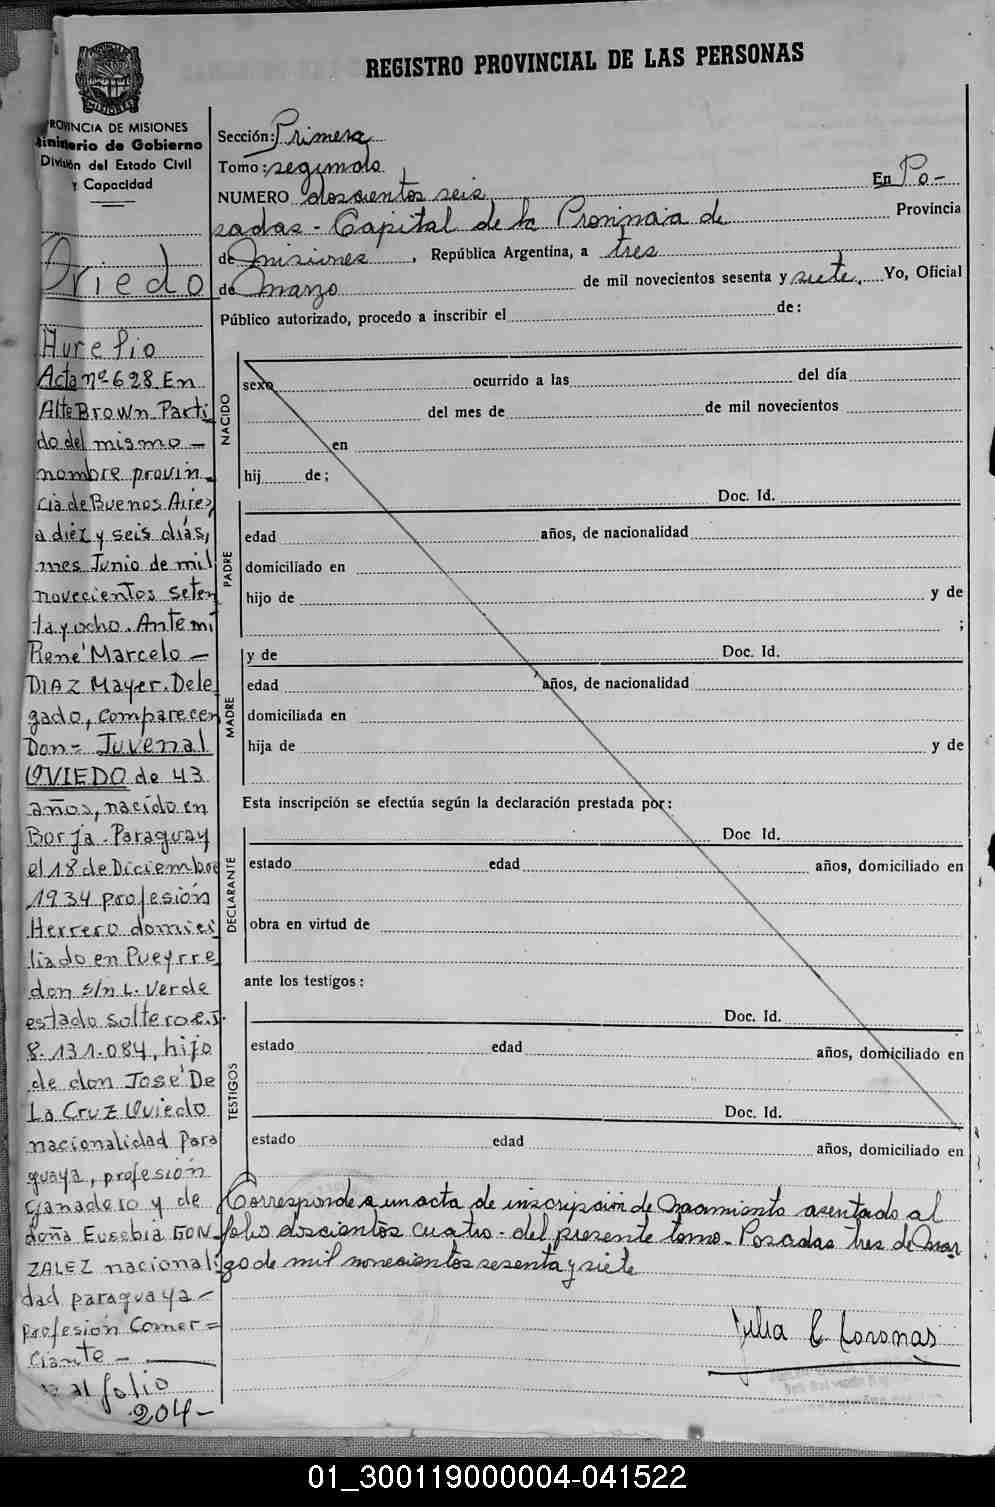 REGISTRO PROVINCIAL DE LAS PERSONAS
PROVINCIA DE MISIONES
Ministerio de Gobierno
División del Estado Civil
y Capacidad
Oviedo
Aurelio
Acta nº 628 En
Alte Brown Parti
do del mismo —
nombre provin
cia de Buenos Aires,
a diez y seis días,
mes Junio de mil
novecientos seten
ta y ocho. Ante mi
René Marcelo —
DIAZ Mayer. Dele
gado, comparecen
Don= Juvenal
OVIEDO de 43
años, nacido en
Borja - Paraguay
el 18 de Diciembre
1934 profesión
Herrero domici
liado en Pueyrre
don s/n L. Verde
estado soltero e.I.
8.131.084, hijo
de don José De
La Cruz Oviedo
nacionalidad Para
guaya, profesión
Ganadero y de
doña Eusebia GON
ZALEZ nacionali
dad paraguaya —
profesión Comer=
ciante — —
al folio
204-
Sección: Primera
Tomo: segundo
NUMERO doscientos seis
En Po-
sadas - Capital de la Provincia de
Provincia
de Misiones, República Argentina, a tres
de Marzo de mil novecientos sesenta y siete. Yo, Oficial
Público autorizado, procedo a inscribir el de:
NACIDO
sexo ocurrido a las del día
del mes de de mil novecientos
en
hij de;
PADRE
Doc. Id.
edad años, de nacionalidad
domiciliado en
hijo de y de
;
MADRE
y de Doc. Id.
edad años, de nacionalidad
domiciliada en
hija de y de
Esta inscripción se efectúa según la declaración prestada por:
DECLARANTE
Doc Id.
estado edad años, domiciliado en
obra en virtud de
ante los testigos:
TESTIGOS
Doc. Id.
estado edad años, domiciliado en
Doc. Id.
estado edad años, domiciliado en
Corresponde a un acta de inscripción de Nacimiento asentado al
folio doscientos cuatro - del presente tomo - Posadas tres de Mar
zo de mil novecientos sesenta y siete
Julia C Coronas
01_300119000004-041522